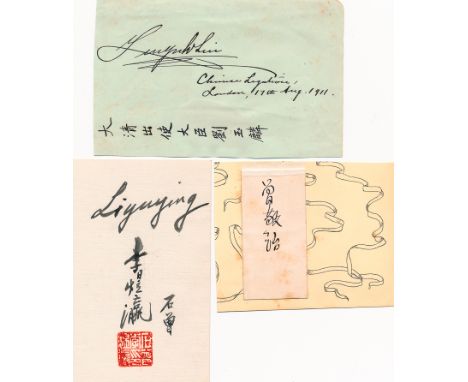 Chinese Legation,
London, 17th Aug. 1911.
大清出使大臣劉玉麟
Liyuying
李煜瀛
石曾
曾敬詒